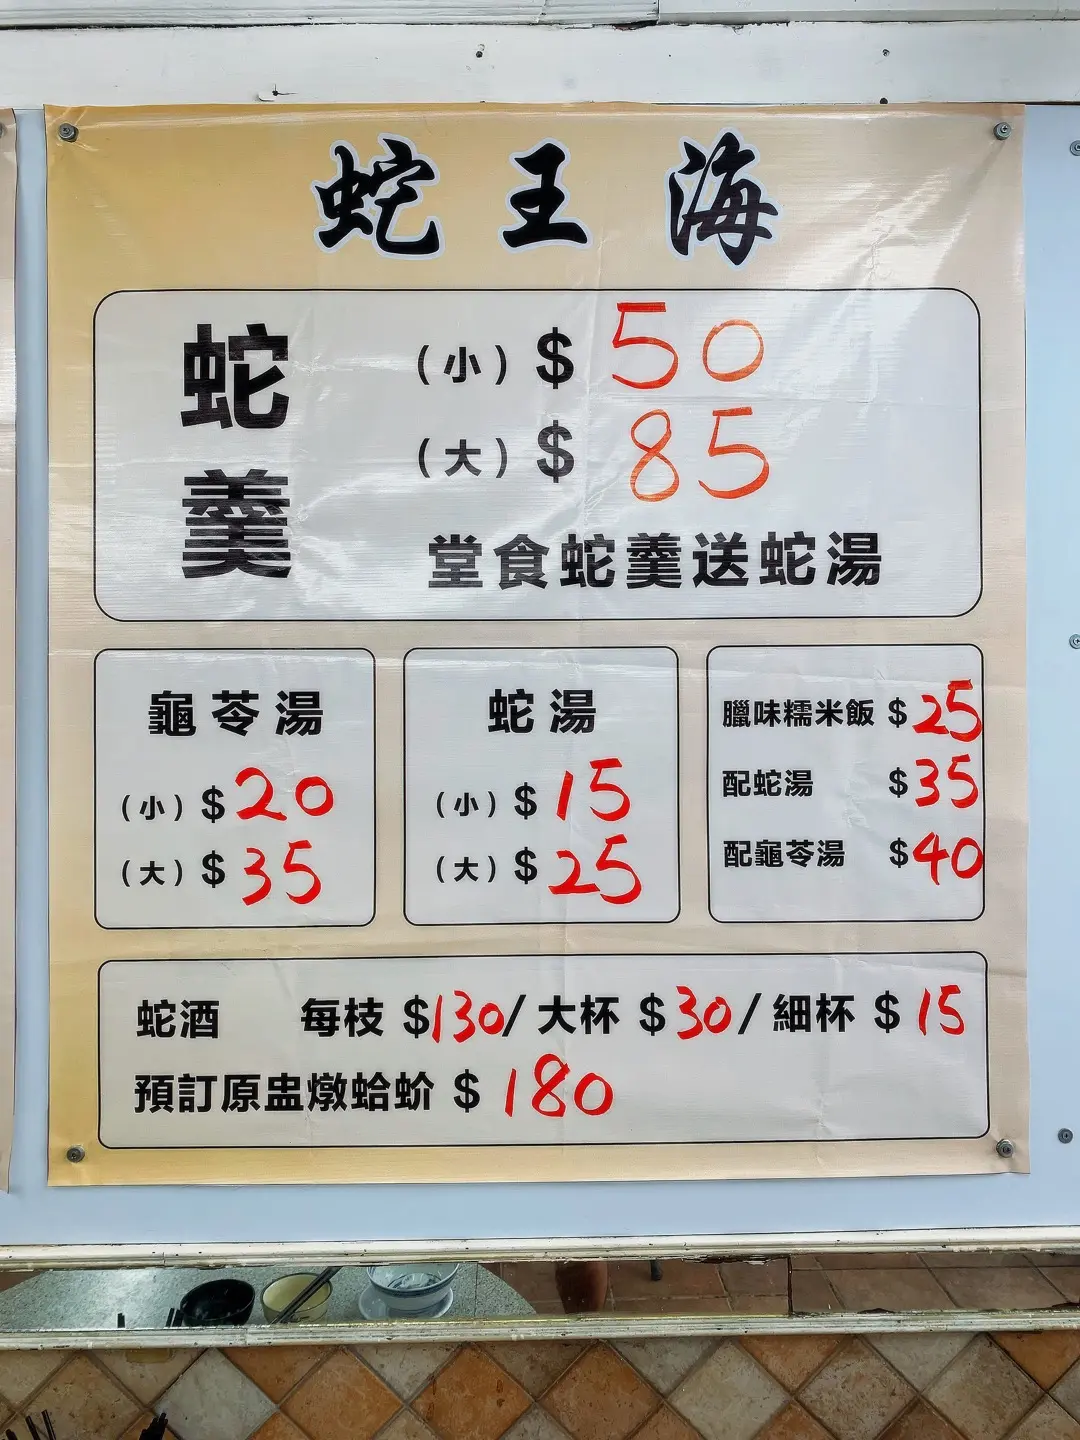 蛇王海
蛇羹
（小）$ 50
（大）$ 85
堂食蛇羹送蛇湯
龜苓湯
（小）$ 20
（大）$ 35
蛇湯
（小）$ 15
（大）$ 25
臘味糯米飯 $ 25
配蛇湯 $ 35
配龜苓湯 $ 40
蛇酒 每枝 $130/大杯 $30/細杯 $ 15
預訂原盅燉蛤蚧 $ 180